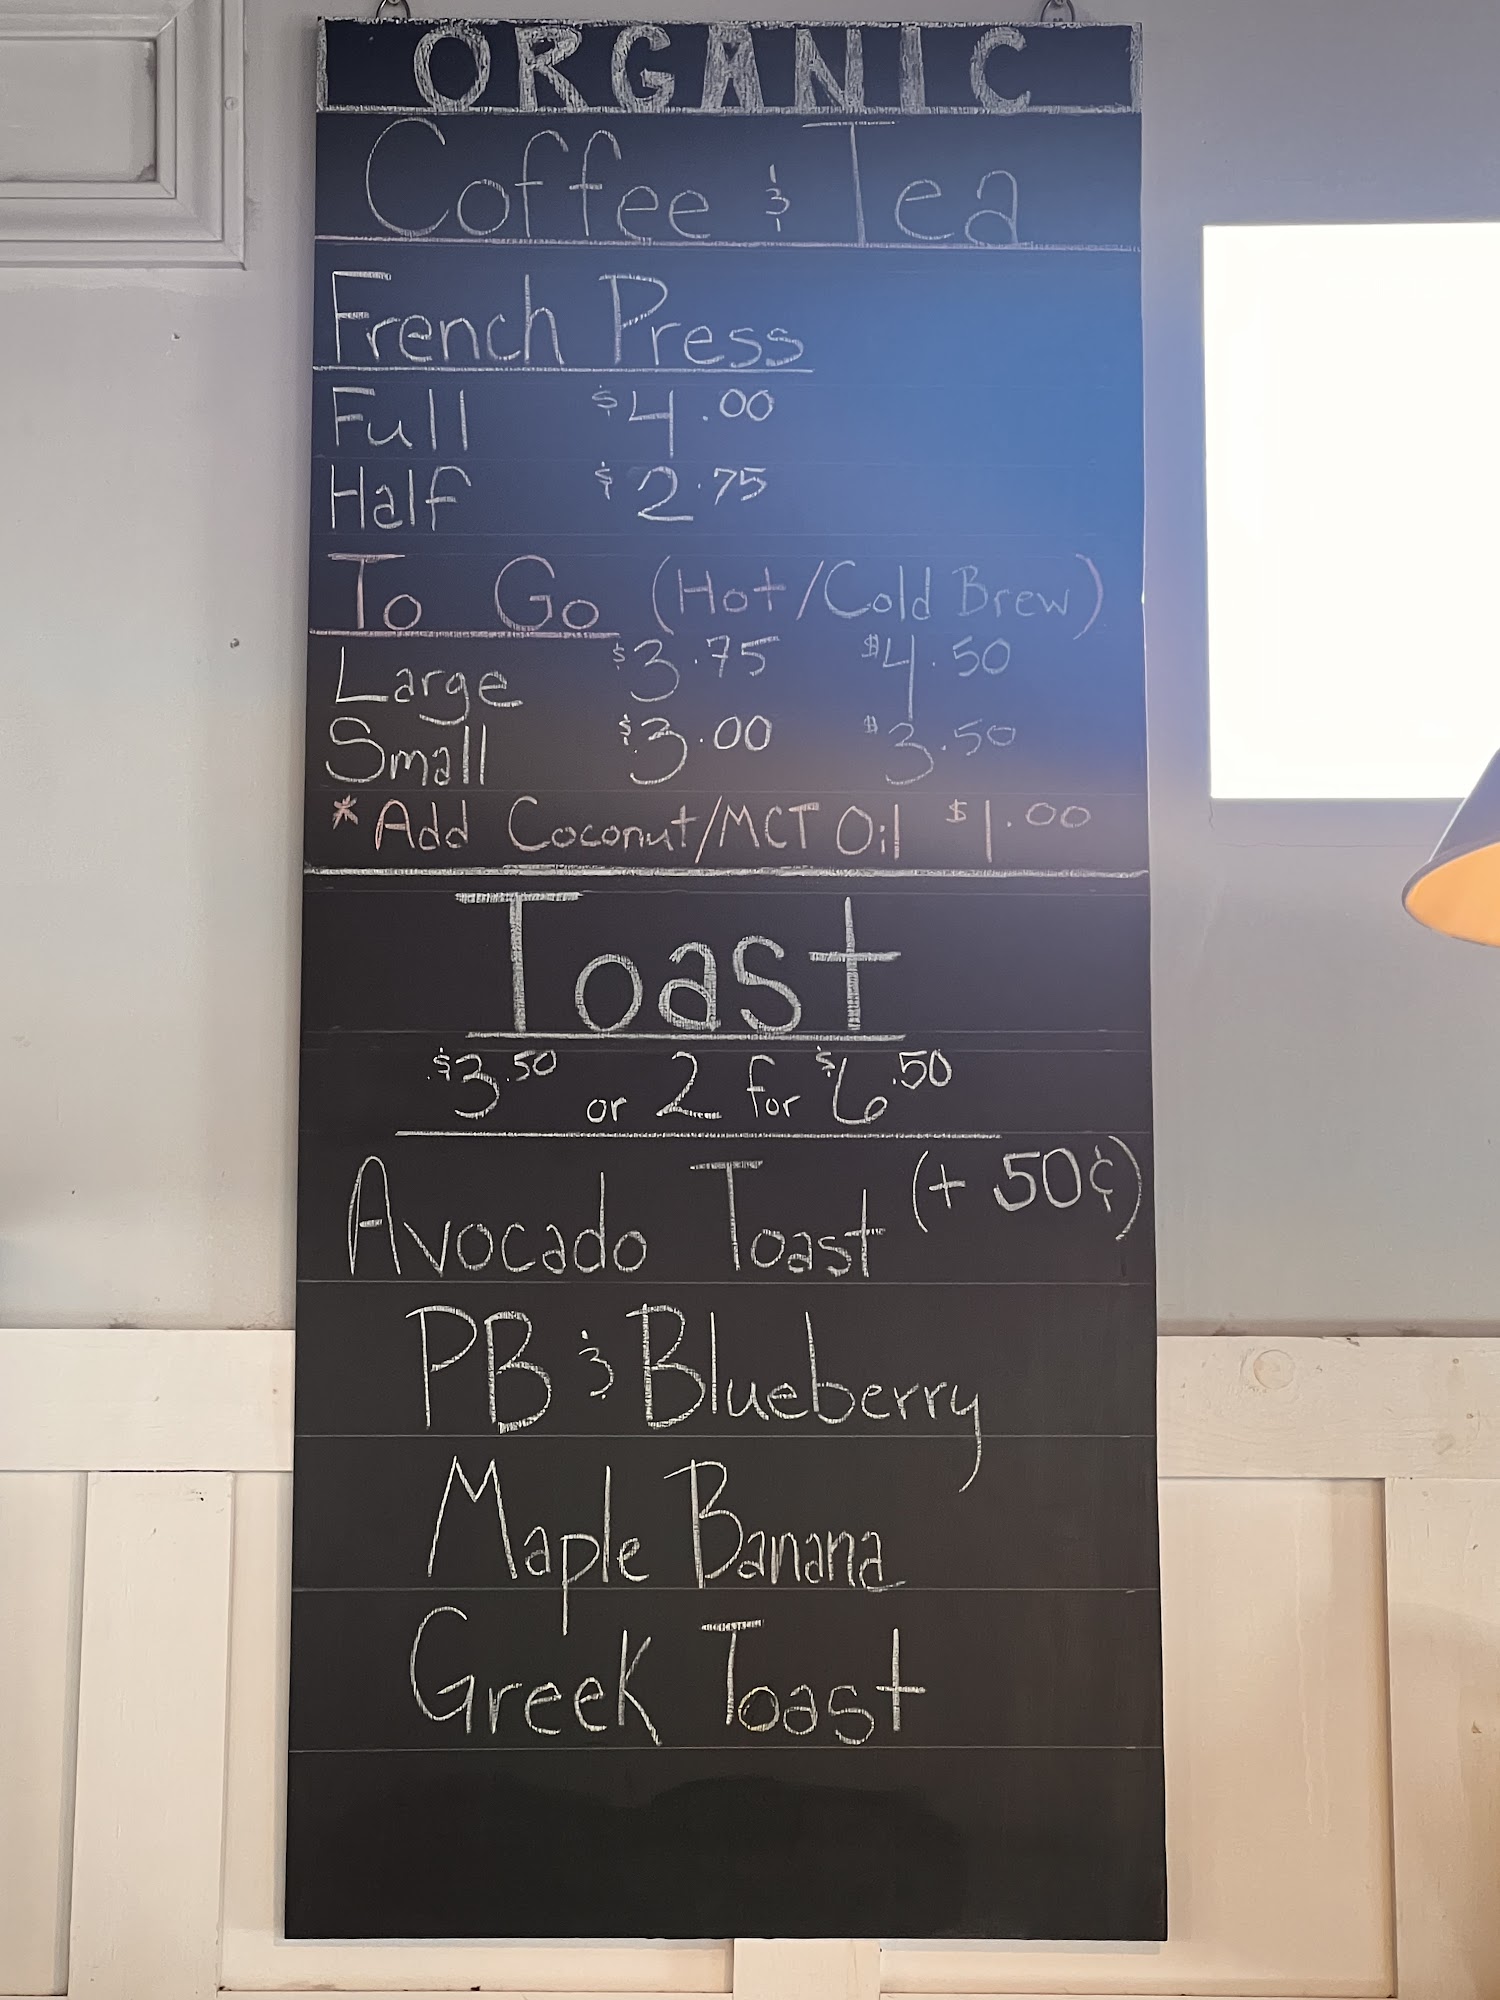 ORGANIC
Coffee & Tea
French Press
Full $4.00
Half $2.75
To Go (Hot/Cold Brew)
Large $3.75 $4.50
Small $3.00 $3.50
*Add Coconut/MCT Oil $1.00
Toast
$3.50 or 2 for $6.50
Avocado Toast (+ 50¢)
PB & Blueberry
Maple Banana
Greek Toast